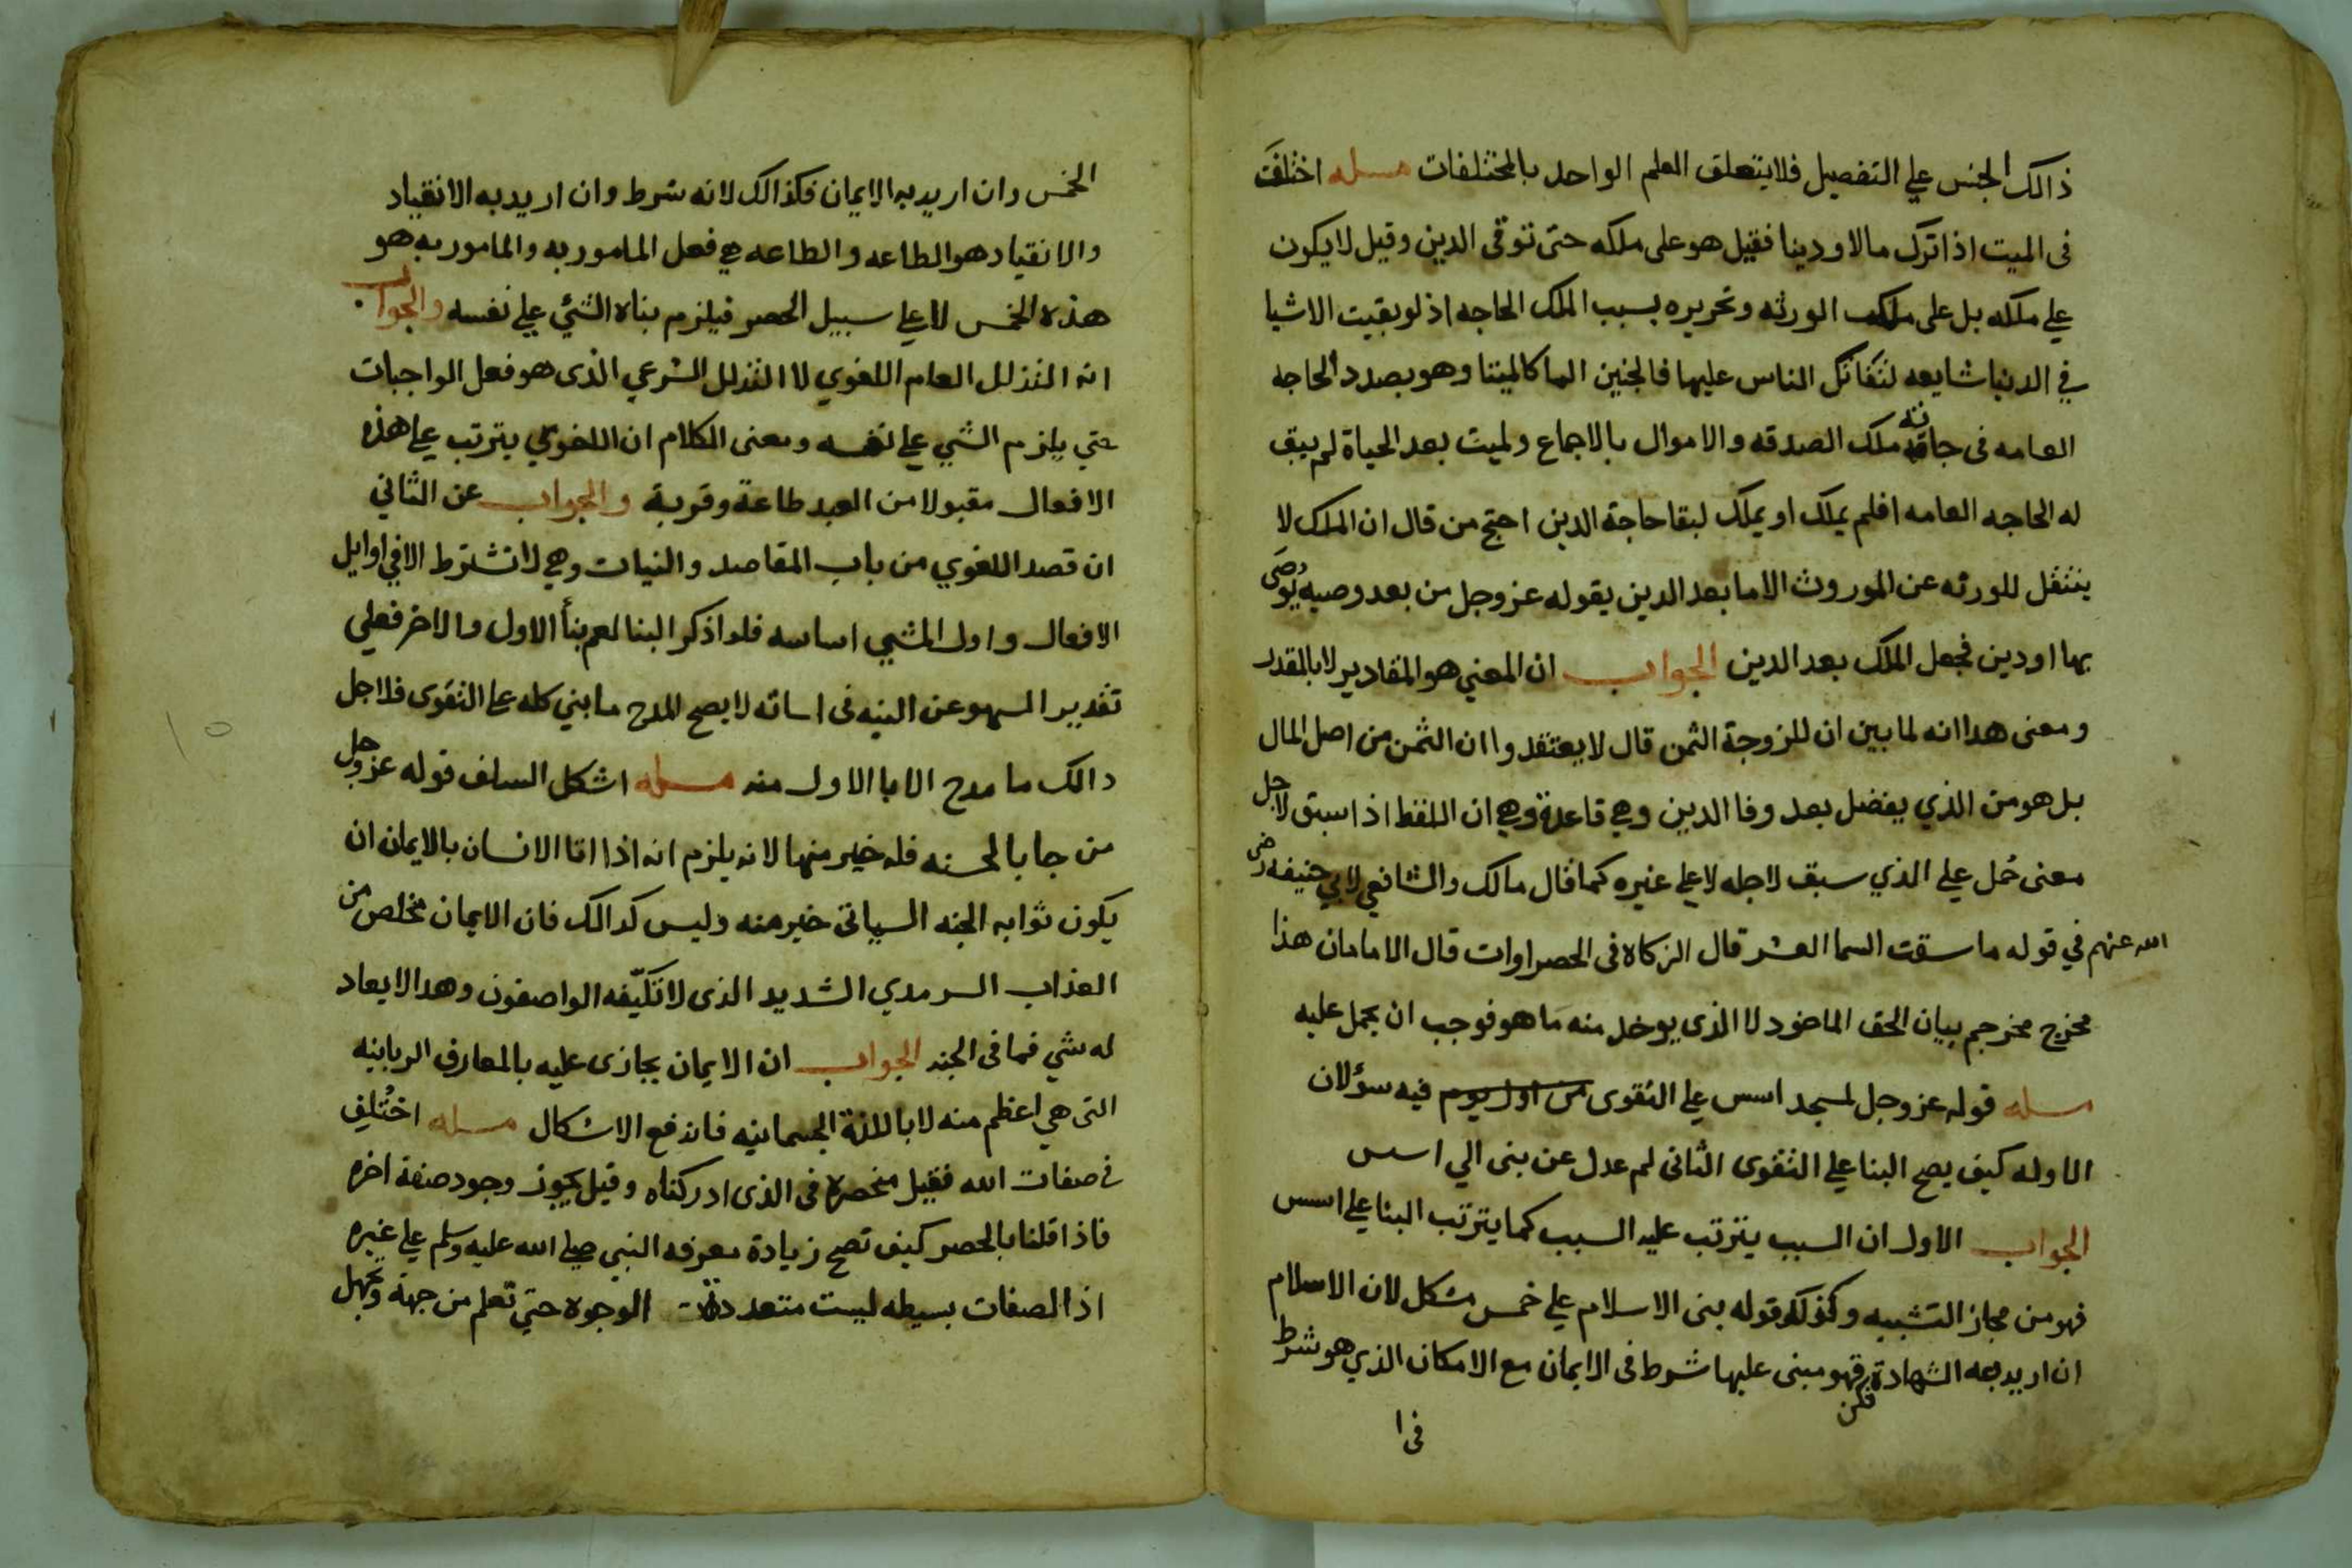 ذالك الجنس علي التفصيل فلا يتعلق العلم الواحد بالمختلفات مسله اختلف
فى الميت اذا ترك مالا ودينا فقيل هو على ملكه حتى توفى الدين وقيل لا يكون
علي ملكه بل على ملك الورثه وتحريره بسبب الملك الحاجه اذ لو بقيت الاشيا
في الدنيا شايعه لتقاتل الناس عليها فالجنين الما كالميتا وهو بصدد الحاجه
العامه فى ملك الصدقه والاموال بالاجماع ولميت بعد الحياة لم يبق
له الحاجه العامه افلم يملك او يملك لبقا حاجة الدين احتج من قال ان الملك لا
ينتقل للورثه عن الموروث الاما بعد الدين بقوله عز وجل من بعد وصيه يُوصَى
بها او دين فجعل الملك بعد الدين الجواب ان المعني هو المقادير لا بالمقدر
ومعنى هدا انه لما بين ان للزوجة الثمن قال لا يعتقدوا ان الثمن من اصل المال
بل هو من الذي يفضل بعد وفا الدين وهي قاعدة وهي ان اللفظ اذا سبق لاجل
معنى حُمل علي الذي سبق لاجله لا علي غيره كما قال مالك والشافعي لابي حنيفه رضى
الله عنهم في قوله ما سقت السما العشر قال الزكاة فى الحصراوات قال الامامان هذا
مخرج مخرجم بيان الحق الماخود لا الذى يوخد منه ما هو فوجب ان يحمل عليه
مسله قوله عز وجل لمسجد اسس علي التقوى من اول يوم فيه سؤلان
الاوله كيف يصح البنا علي التقوى الثانى لم عدل عن بنى الي اسس
الجواب الاول ان السبب يترتب عليه السبب كما يترتب البنا علي اسس
فهو من مجاز التشبيه وكذلك قوله بنى الاسلام علي خمس مشكل لان الاسلام
ان اريد به الشهادة فهو مبنى عليها شرط فى الايمان مع الامكان الذي هو شرط
فى ا
الخمس وان اريد به الايمان فكذالك لانه شرط وان اريد به الانقياد
والانقياد هو الطاعه والطاعه هي فعل المامور به والمامور به هو
هذه الخمس لا علي سبيل الحصر فيلزم بناه الشي علي نفسه والجواب
انه التذلل العام اللغوي لا التذلل الشرعي الذى هو فعل الواجبات
حتي يلزم الشي علي نفسه ومعنى الكلام ان اللغوي يترتب علي هذه
الافعال مقبولا من العبد طاعة وقربة والجواب عن الثاني
ان قصد اللغوي من باب المقاصد والنيات وهي لا تشترط الا في اوايل
الافعال واول المشي اساسه فلو اذكر البنا لعم بنأ الاول والاخر فعلي
تقدير السهو عن النيه فى اساته لا يصح المدح ما بني كله علي التقوى فلا اجل
دالك ما مدح الا با الاول منه مسله اشكل السلف قوله عز وجل
من جا بالحسنه فله خير منها لانه يلزم انه اذا اتا الانسان بالايمان ان
يكون ثوابه الجنه السياتى خير منه وليس كدالك فان الايمان مخلص من
العذاب السرمدي الشديد الذى لا تكيّفه الواصفون وهدا لا يعاد
له شي فما فى الجنه الجواب ان الايمان يجازى عليه بالمعارف الربانيه
التى هي اعظم منه لا باللذة الجسمانيه فاندفع الاشكال مسله اختُلِف
في صفات الله فقيل منحصرة فى الذى ادركناه وقيل يجوز وجود صفة اخره
فاذا قلنا بالحصر كيف تصح زيادة معرفه النبي صلي الله عليه وسلم علي غيره
اذا الصفات بسيطه ليست متعددة الوجوه حتي تعلم من جهة وتجهل